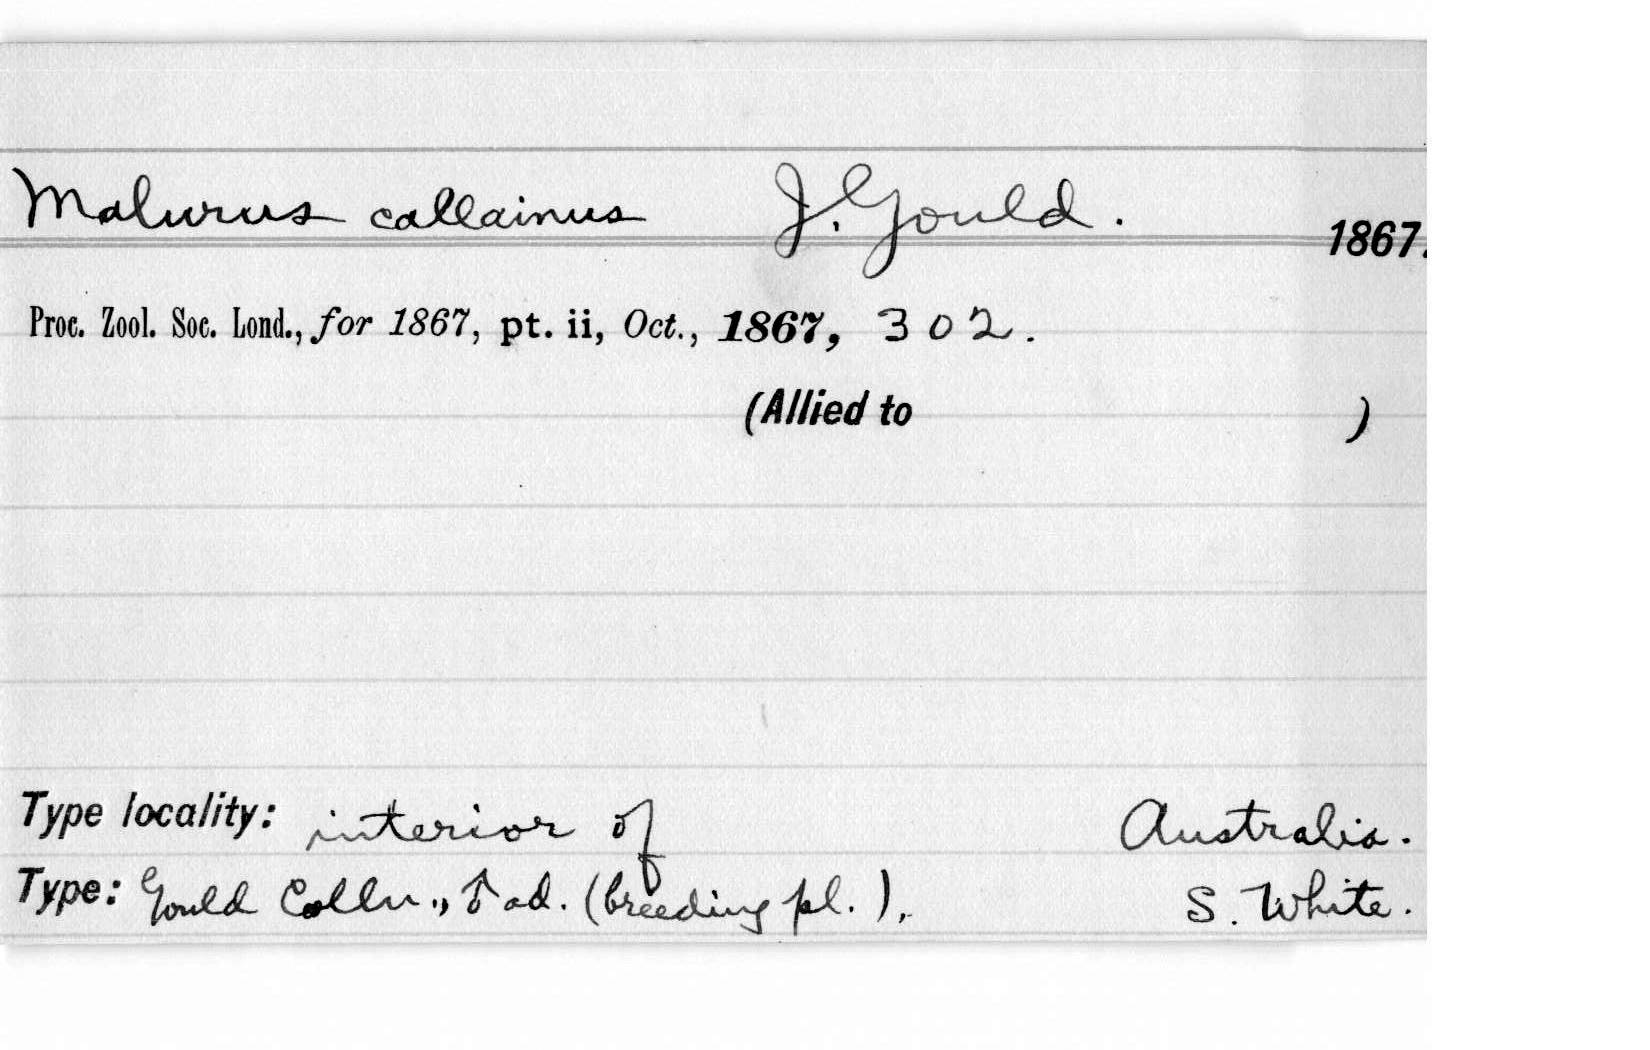 Malurus callainus J. Gould. 1867.
Proc. Zool. Soc. Lond., for 1867, pt. ii, Oct., 1867, 302.
(Allied to )
Type locality: interior of Australia.
Type: Gould Colln., ♂ ad. (breeding pl.), S. White.